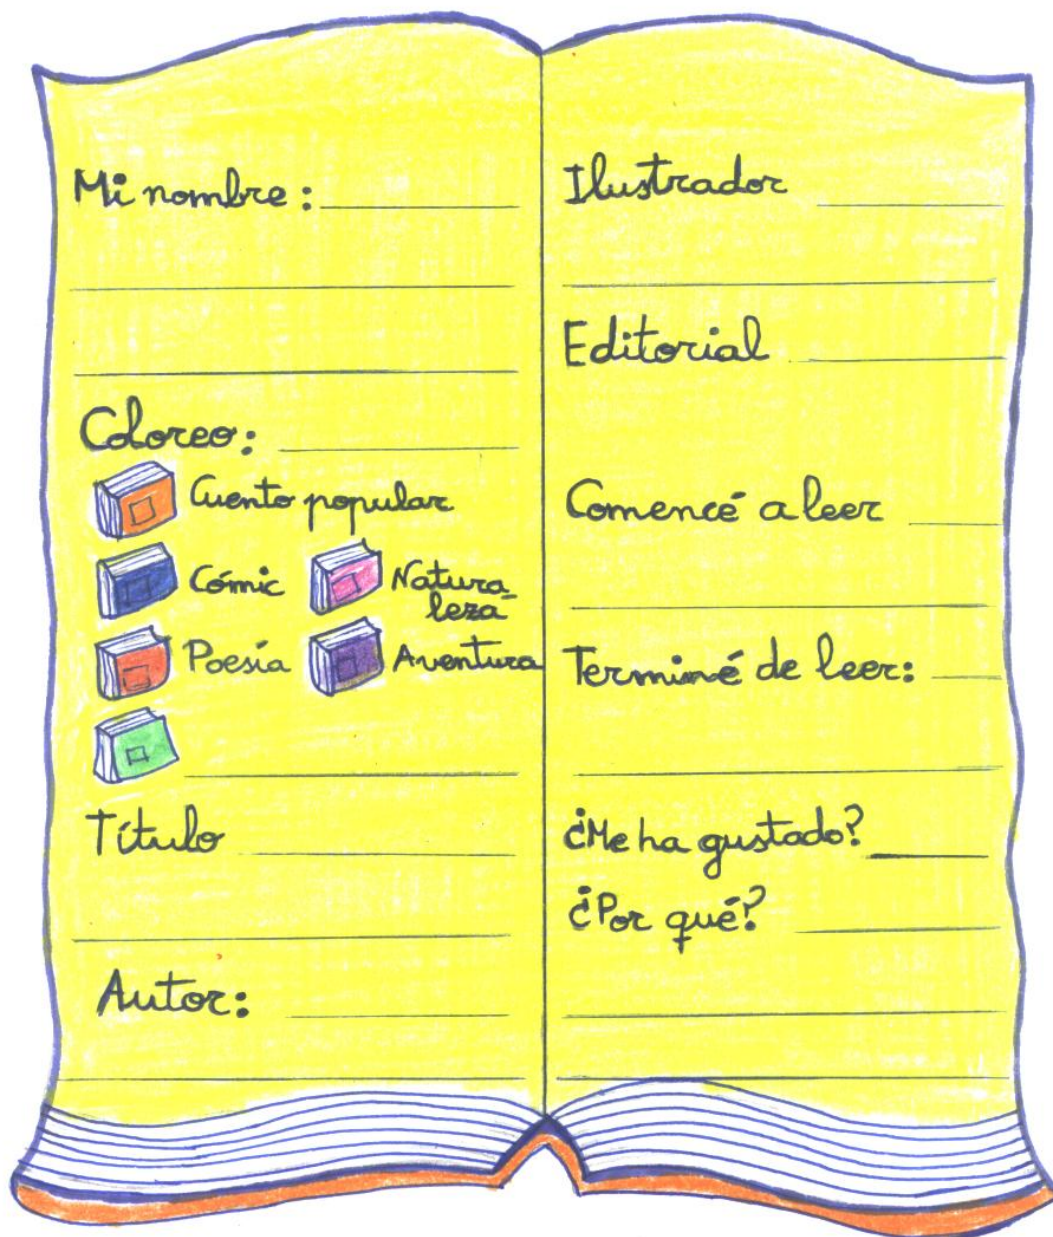 Mi nombre:
Coloreo:
Cuento popular
Cómic
Natura-
leza
Poesía
Aventura
Título
Autor:
Ilustrador
Editorial
Comencé a leer
Terminé de leer:
¿Me ha gustado?
¿Por qué?